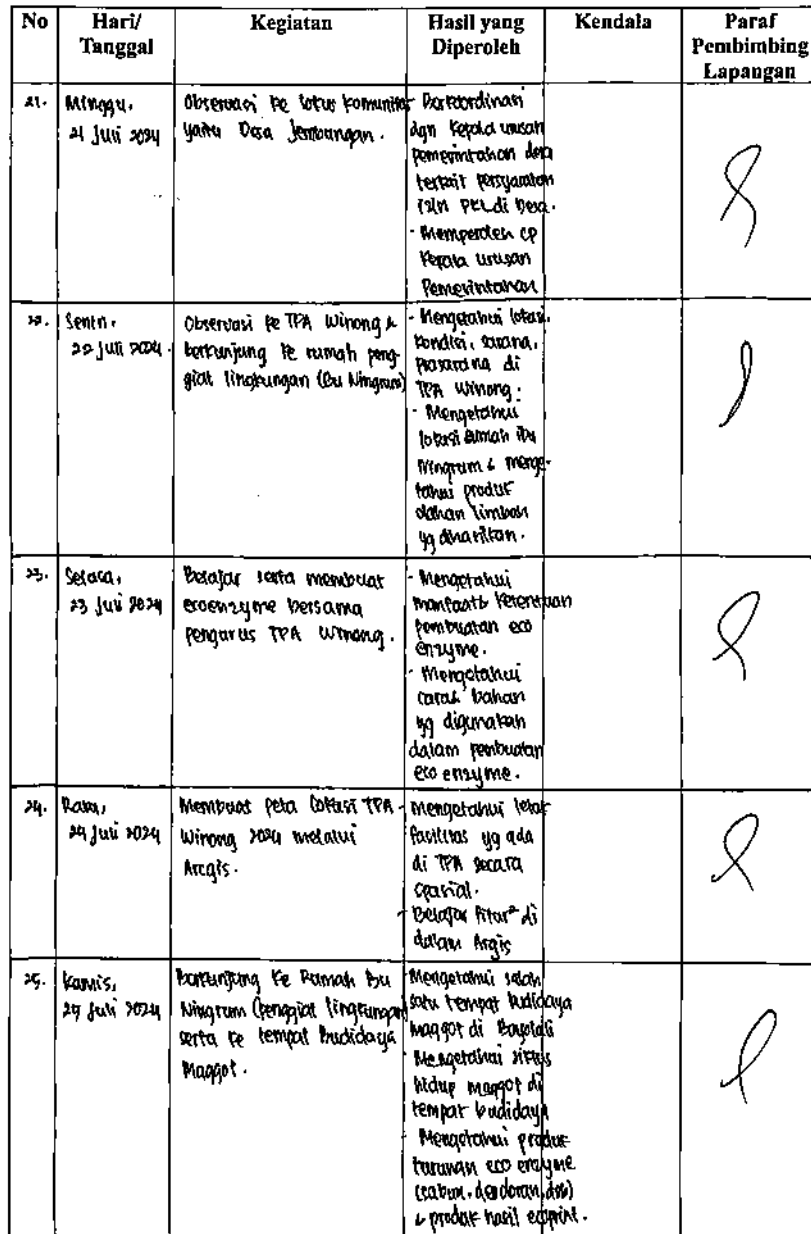 No Hari/ Tanggal Kegiatan Hasil yang Diperoleh Kendala Paraf Pembimbing Lapangan
21. Minggu, 21 Juli 2024
Observasi ke lokus komunitas
yaitu Desa Jembungan.
- Berkoordinasi
dgn kepala urusan
pemerintahan desa
terkait persyaratan
izin PKL di Desa.
- Memperoleh cp
kepala urusan
Pemerintahan
22. Senin, 22 Juli 2024.
Observasi ke TPA Winong &
berkunjung ke rumah peng-
giat lingkungan (Bu Ningrum)
- Mengetahui lokasi,
kondisi, sarana,
prasarana di
TPA Winong.
- Mengetahui
lokasi rumah ibu
Ningrum & menge-
tahui produk
olahan limbah
yg dihasilkan.
23. Selasa, 23 Juli 2024
Belajar serta membuat
ecoenzyme bersama
pengurus TPA Winong.
- Mengetahui
manfaat & ketentuan
pembuatan eco
enzyme.
- Mengetahui
cara & bahan
yg digunakan
dalam pembuatan
eco enzyme.
24. Rabu, 24 Juli 2024
Membuat peta lokasi TPA
Winong 2024 melalui
Arcgis.
- Mengetahui letak
fasilitas yg ada
di TPA secara
spasial.
- Belajar fitur² di
dalam Argis
25. Kamis, 25 Juli 2024
Berkunjung ke Rumah Bu
Ningrum (penggiat lingkungan)
serta ke tempat budidaya
Maggot.
- Mengetahui salah
satu tempat budidaya
maggot di Boyolali
- Mengetahui siklus
hidup maggot di
tempat budidaya
- Mengetahui produk
turunan eco enzyme
(sabun, deodoran, dsb)
& produk hasil ecoprint.